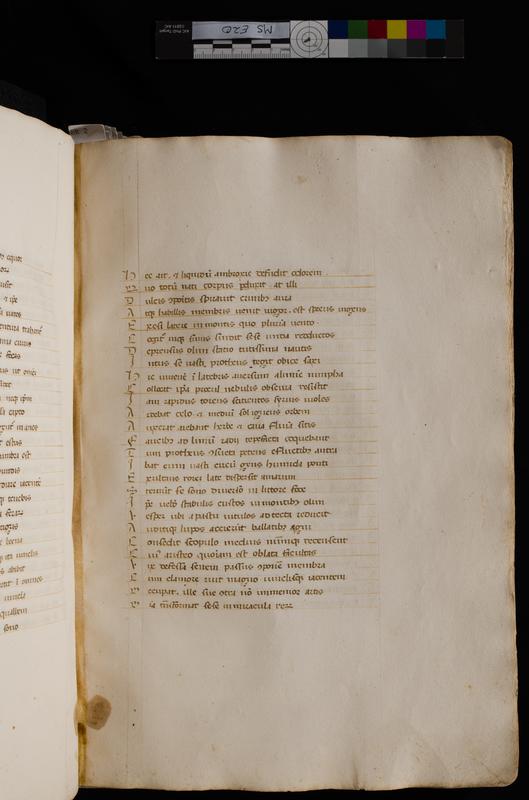 H ec ait. & liquidū ambrosie defudit odorem
Q uo totū nati corpus pduxit. at illi
D ulcis ꝯpoītis spirauit crinibꝫ aura
A tqꝫ habilis membris uenit uigor. est specus ingens
E xesi latere in montis quo plurīa uento
C ogit inqꝫ sinus scindit sese unda reductos
D eprensis olim statio tutissima nautis
I ntus se uasti protheus tegit obice saxi
H ic iuuenē ī latebris auersum alumīe nimpha
C ollocat ipa procul nebulis obscura resistit
I am rapidus torens sitientes syrius
A rdebat celo & mediū sol igneus orbem
A userat arebant herbe & caua flumīa siccis
F aucibꝫ ad limū radii tepefacta coquebant
C um protheus ꝯsueta petens efluctibꝫ antra
I bat eum uasti circū gens humida ponti
E xultans rorē late dispersit amarum
S ternūt se sōno diuerso in littore foce
I pē uelut stabulis custos in montibus olim
V esper ubi apastu uitulos ad tecta reducit
A uditiqꝫ lupos accuunt ballatibꝫ agni
C onsedit scopulo medius numqꝫ recenscit
C ui aristeo quoniam est oblata facultas
V ix defessa senem passus ꝯponē membra
C um clamore ruit magno maniclisqꝫ iacentem
O ccupat. ille sue ꝯtra nō inmemor artis
O ia trāsformat sese in miracula rerꝝ